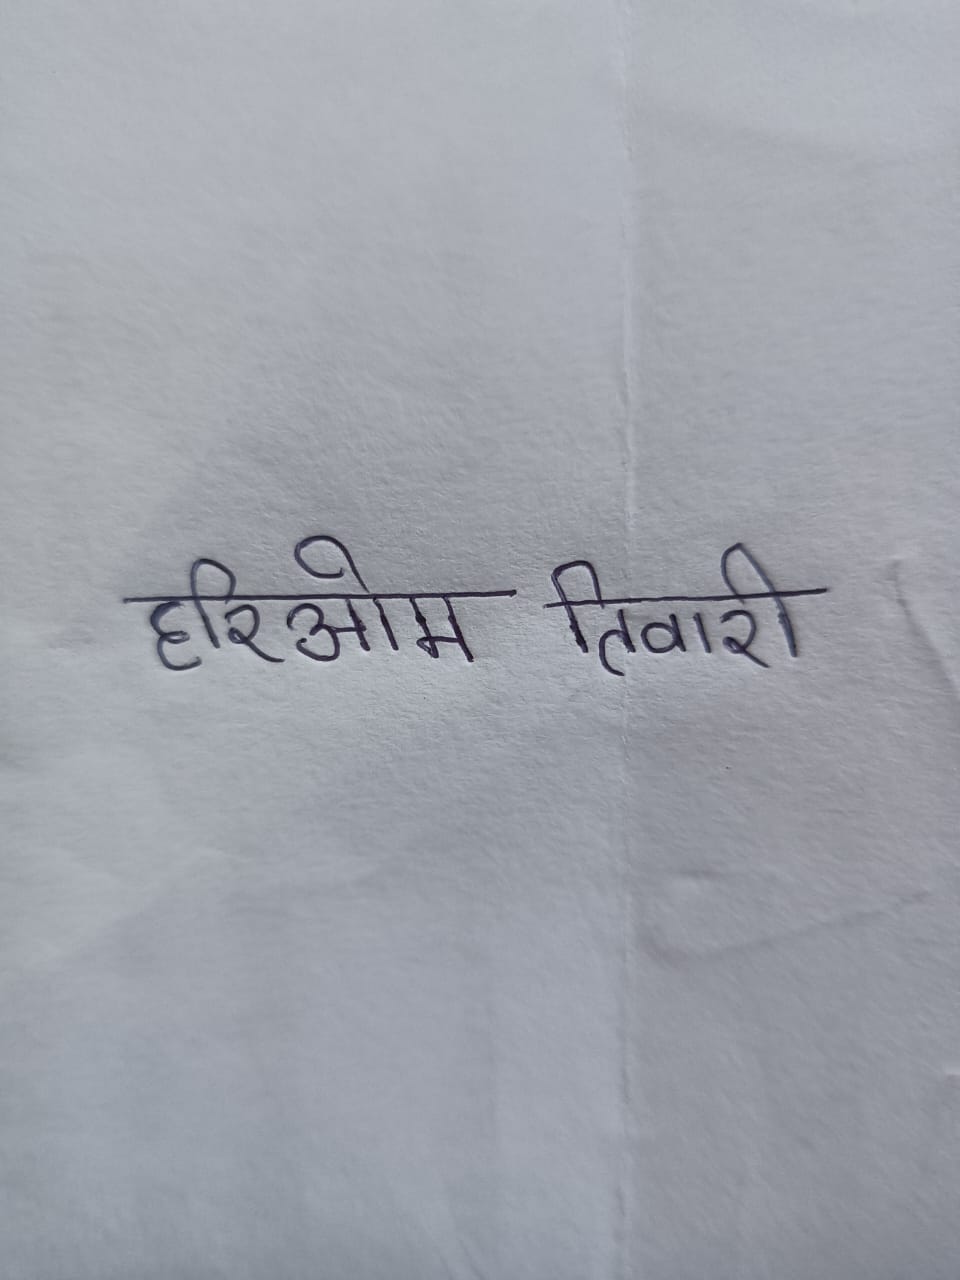 हरिओम तिवारी